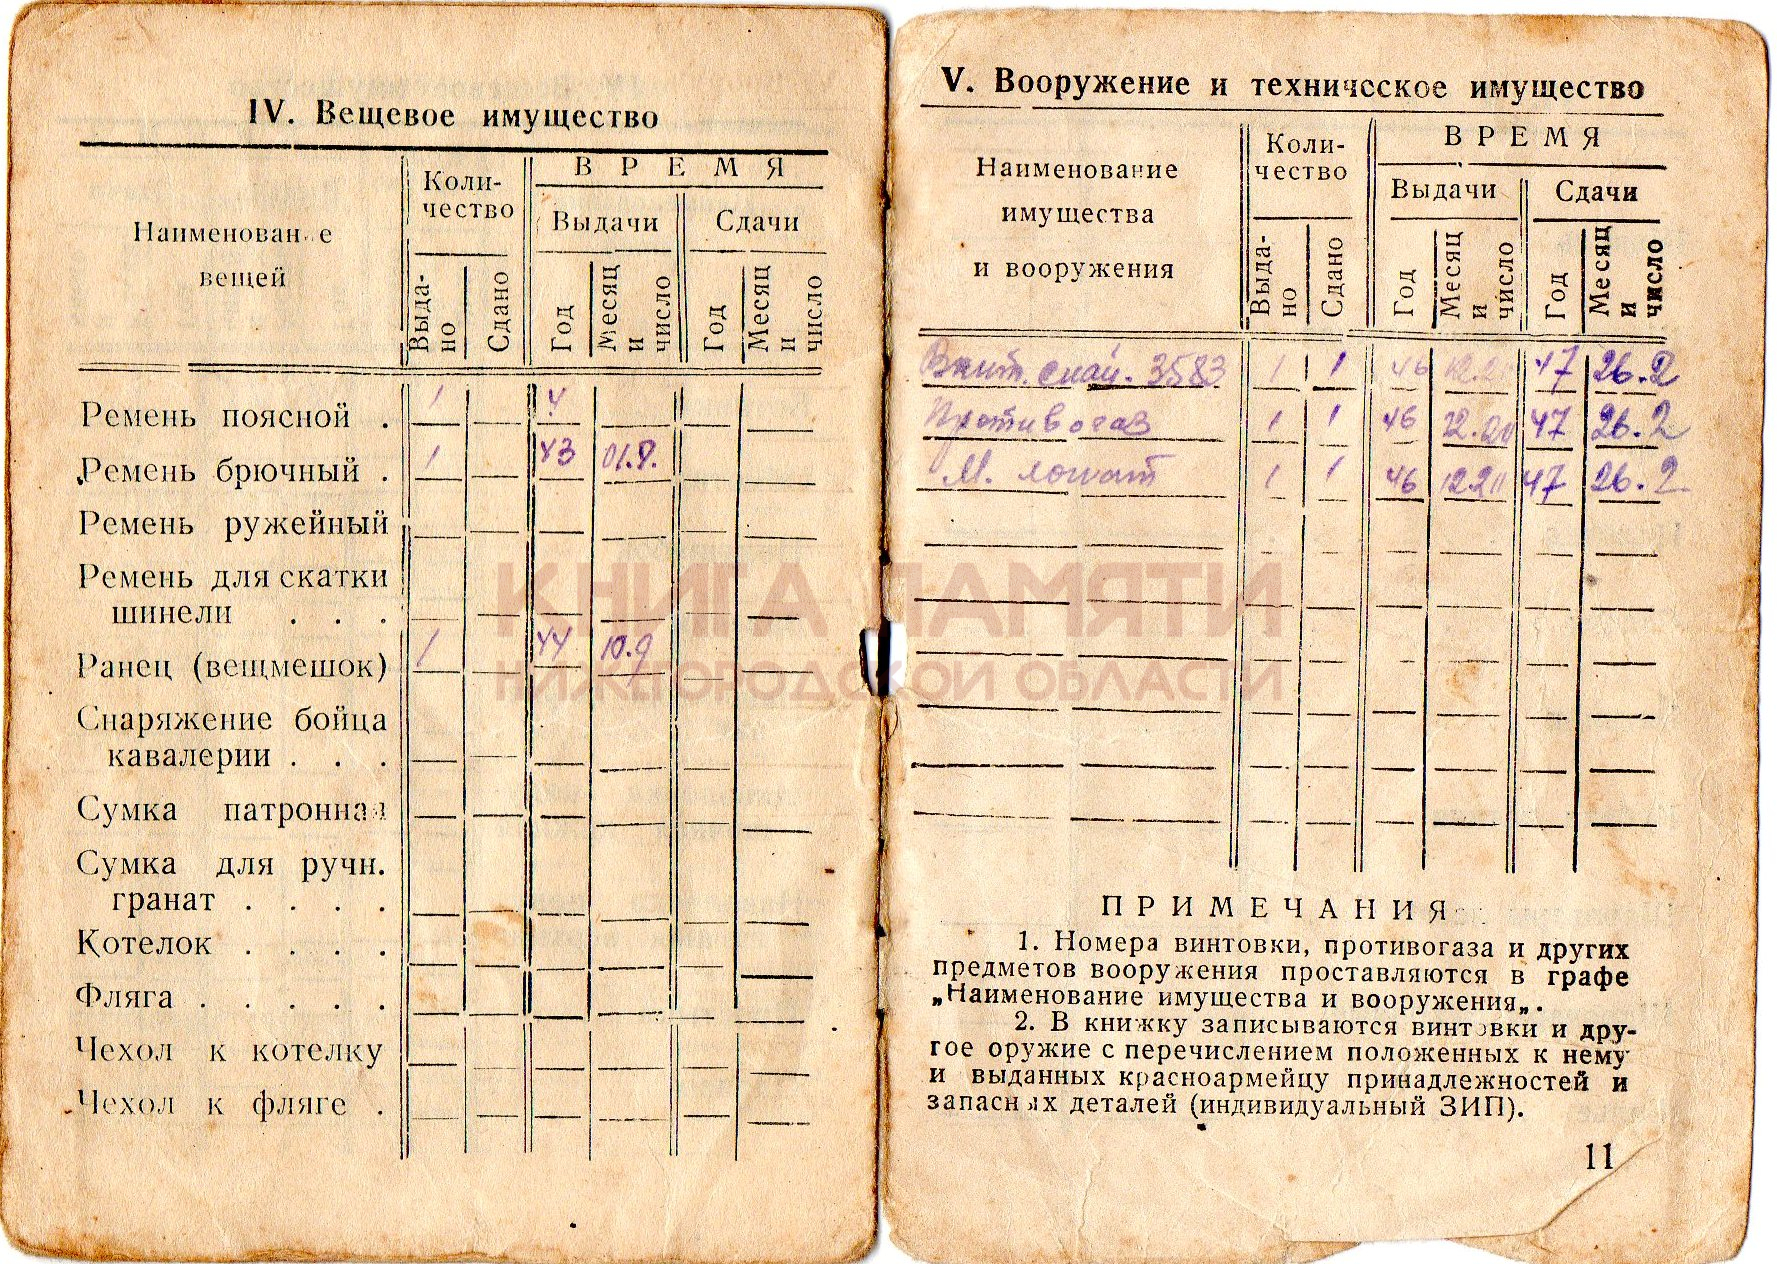 IV. Вещевое имущество
Наименование
вещей
Коли-
чество
ВРЕМЯ
Выдачи
Сдачи
Выда-
но
Сдано
Год
Месяц
и
число
Год
Месяц
и
число
Ремень поясной . 1 4
Ремень брючный . 1 43 01.8.
Ремень ружейный
Ремень для скатки
шинели . . .
Ранец (вещмешок) 1 44 10.9
Снаряжение бойца
кавалерии . . .
Сумка патронная
Сумка для ручн.
гранат . . . .
Котелок . . . .
Фляга . . . . .
Чехол к котелку
Чехол к фляге .
V. Вооружение и техническое имущество
Наименование
имущества
и вооружения
Коли-
чество
ВРЕМЯ
Выдачи
Сдачи
Выда-
но
Сдано
Год
Месяц
и
число
Год
Месяц
и
число
Винт. снай. 3583 1 1 46 47 26.2
Противогаз 1 1 46 47 26.2
М. лопат 1 1 46 47 26.2
КНИГА ПАМЯТИ
НИЖЕГОРОДСКОЙ ОБЛАСТИ
ПРИМЕЧАНИЯ
1. Номера винтовки, противогаза и других
предметов вооружения проставляются в графе
„Наименование имущества и вооружения„.
2. В книжку записываются винтовки и дру-
гое оружие с перечислением положенных к нему
и выданных красноармейцу принадлежностей и
запасных деталей (индивидуальный ЗИП).
11